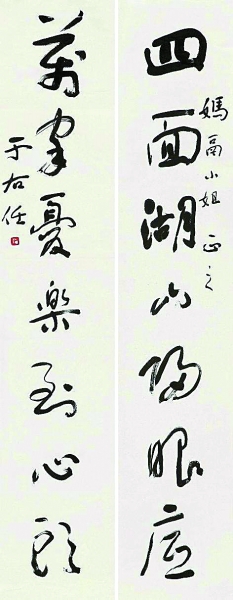 媽鬲小姐正之
四面湖山歸眼底
萬家憂樂到心頭
于右任